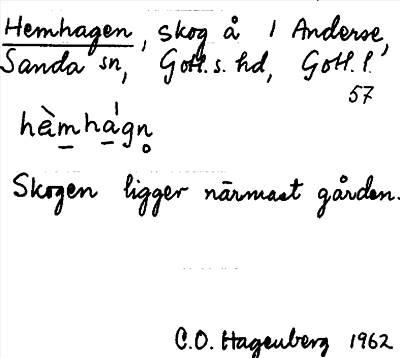 Hemhagen, skog å 1 Anderse,
Sanda sn, Gotl. s. hd, Gotl. l.
57
hàmhágn̥
Skogen ligger närmast gården.
C.O. Hagenberg 1962